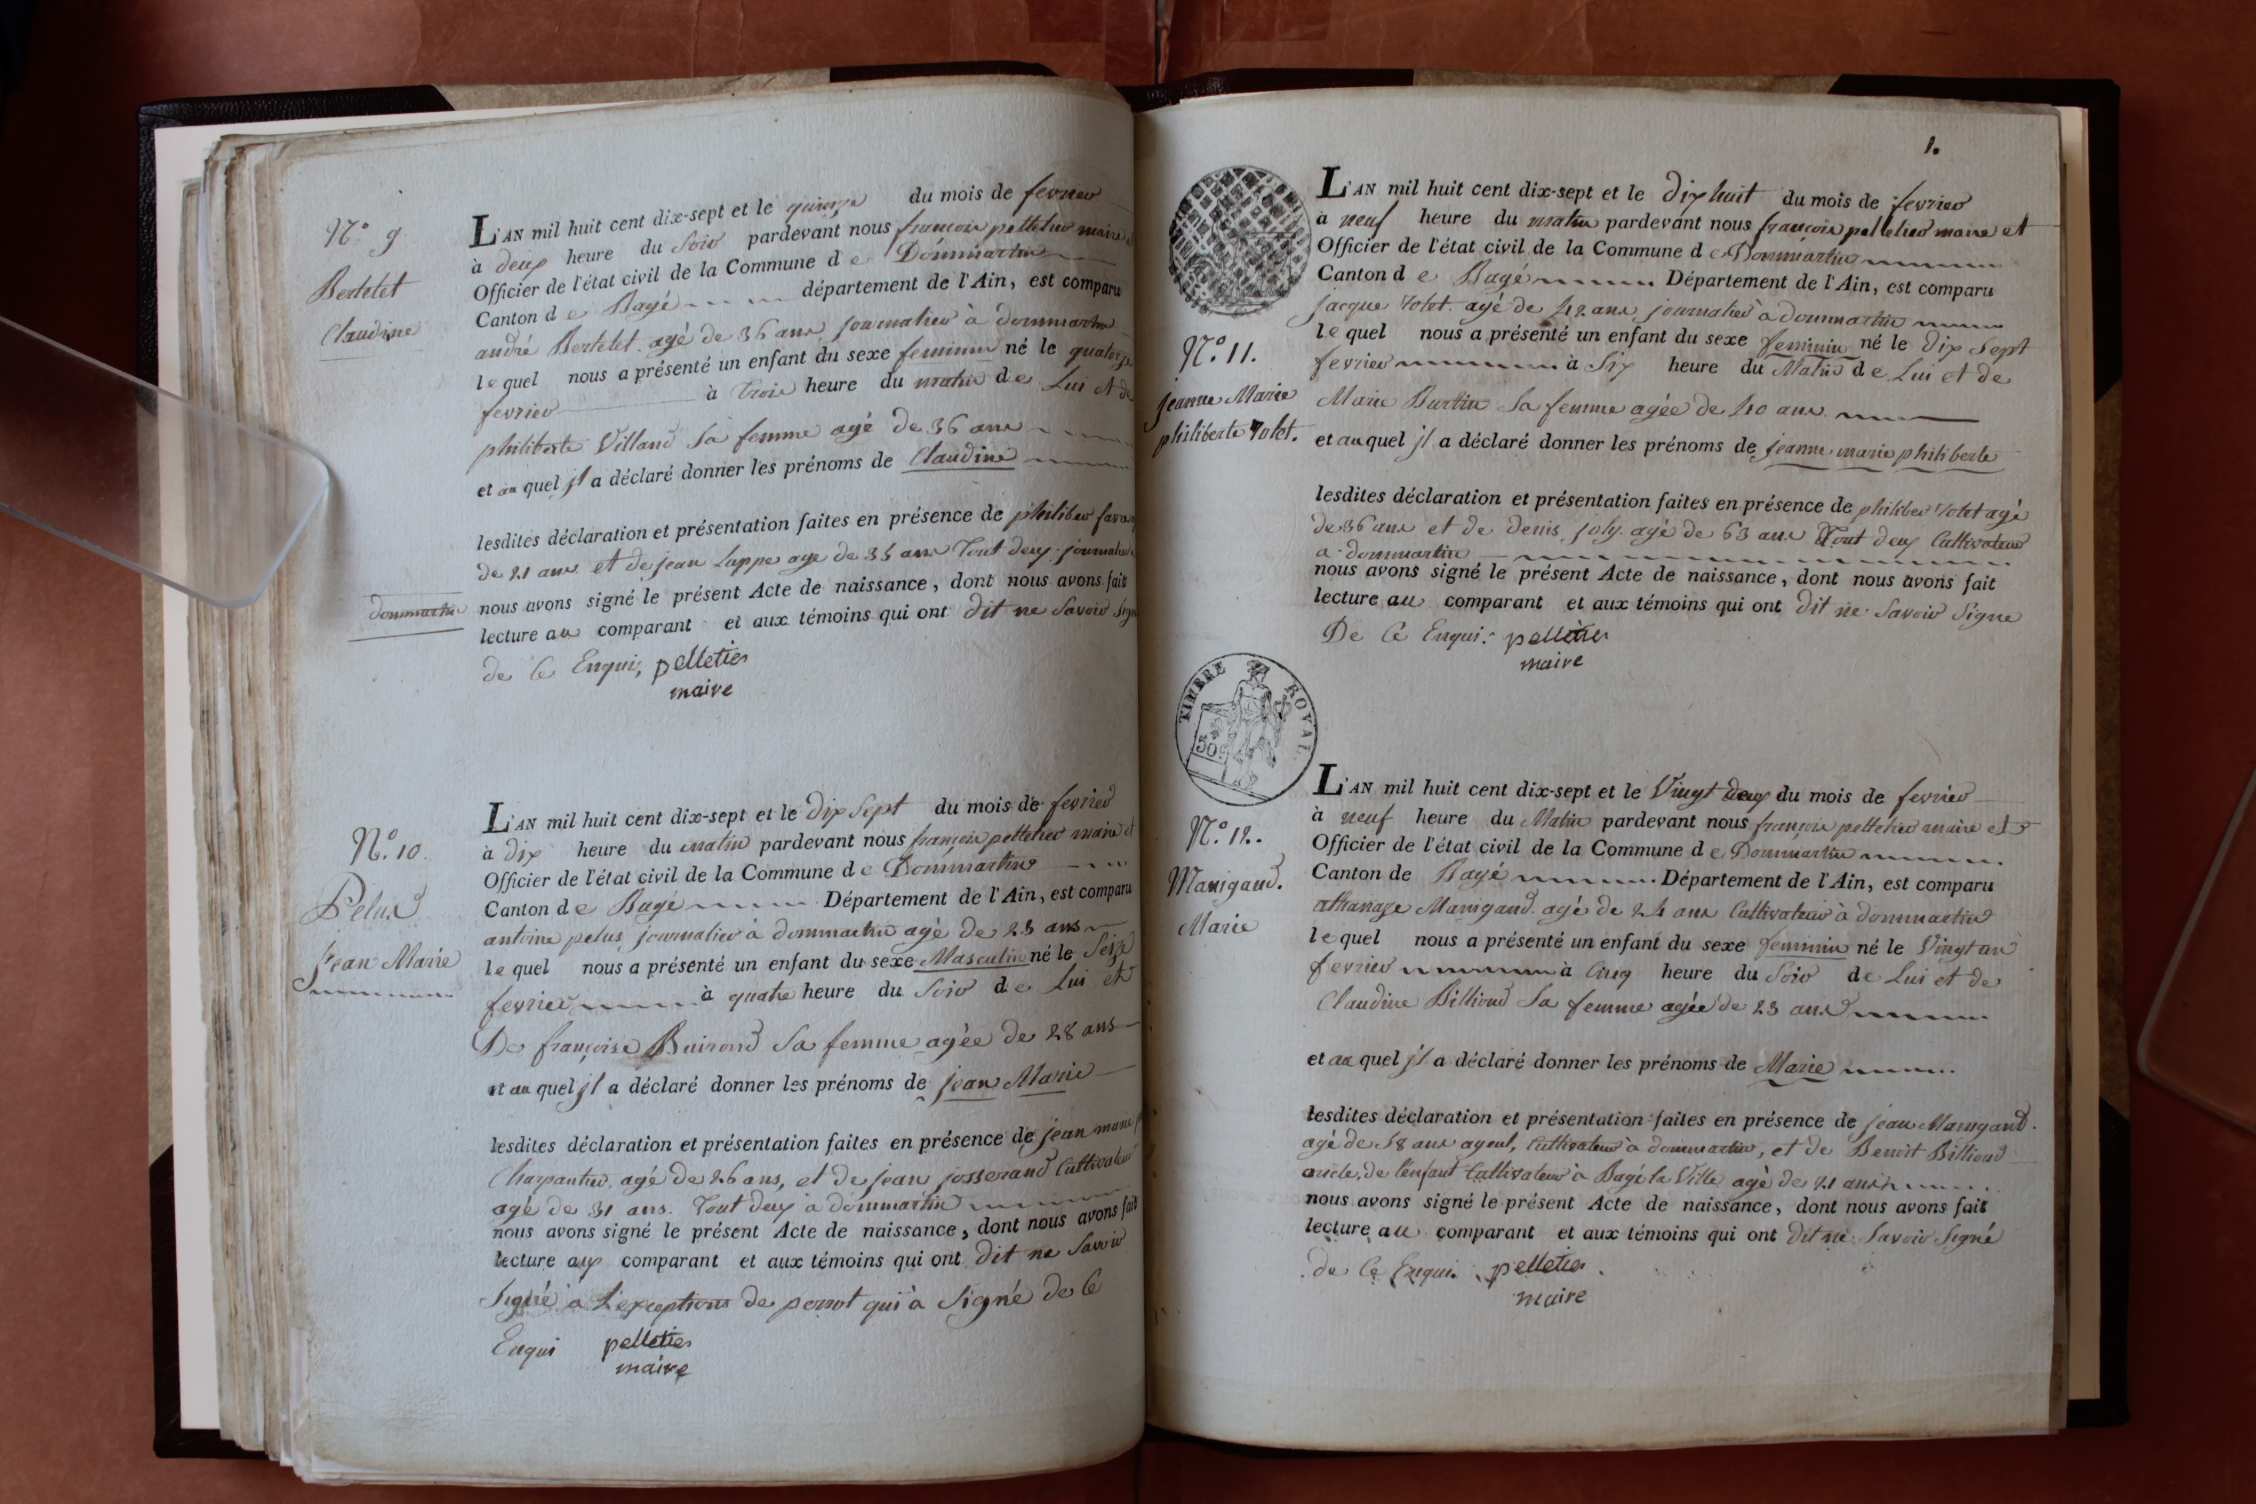 N.° 9.
Bertelet
Claudine
L'AN mil huit cent dix-sept et le quinze du mois de fevrier
à deux heure du Soir pardevant nous françois pelletier maire et
Officier de l'état civil de la Commune d e Dommartin
Canton d e Bagé département de l'Ain, est comparu
andré Bertelet agé de 36 ans journalier à dommartin
le quel nous a présenté un enfant du sexe feminin né le quatorze
fevrier à trois heure du matin de Lui et de
philiberte Villand Sa femme agé de 36 ans
et au quel jl a déclaré donner les prénoms de Claudine
lesdites déclaration et présentation faites en présence de philiber
de 21 ans et de jean Lappe age de 35 ans Tout deux journalier
dommartin
nous avons signé le présent Acte de naissance, dont nous avons fait
lecture au comparant et aux témoins qui ont dit ne Savoir Signe
de Ce Enquis, pelletier
maire
N.° 10.
Pelus
Jean Marie
L'AN mil huit cent dix-sept et le dix Sept du mois de fevrier
à dix heure du matin pardevant nous françois pelletier maire et
Officier de l'état civil de la Commune d e Dommartin
Canton d e Bagé Département de l'Ain, est comparu
antoine pelus journalier à dommartin agé de 23 ans
le quel nous a présenté un enfant du sexe Masculin né le Seize
fevrier à quatre heure du Soir de Lui et
De françoise Buirond Sa femme agée de 28 ans
et au quel jl a déclaré donner les prénoms de jean Marie
lesdites déclaration et présentation faites en présence de jean marie
Charpantier agé de 26 ans, et de jean josserand Cultivateur
agé de 31 ans. Tout deux à dommartin
nous avons signé le présent Acte de naissance, dont nous avons fait
lecture aux comparant et aux témoins qui ont dit ne Savoir
Signé à L'exception de perrot qui à Signé de Ce
Enquis pelletier
maire
1.
N.° 11.
jeanne Marie
philiberte Volet.
L'AN mil huit cent dix-sept et le Dix huit du mois de fevrier
à neuf heure du matin pardevant nous françois pelletier maire et
Officier de l'état civil de la Commune d e Dommartin
Canton d e Bagé Département de l'Ain, est comparu
jacque Volet agé de 42 ans journalier à dommartin
le quel nous a présenté un enfant du sexe feminin né le dix Sept
fevrier à Six heure du Matin de Lui et de
Marie Burtin Sa femme agée de 40 ans
et au quel jl a déclaré donner les prénoms de jeanne marie philiberte
lesdites déclaration et présentation faites en présence de philiber Volet agé
de 36 ans et de denis joly agé de 63 ans Tout deux Cultivateur
a dommartin
nous avons signé le présent Acte de naissance, dont nous avons fait
lecture au comparant et aux témoins qui ont dit ne Savoir Signe
De Ce Enquis. pelletier
maire
TIMBRE ROYAL
50c
N.° 12.
Manigaud.
Marie
L'AN mil huit cent dix-sept et le Vingt deux du mois de fevrier
à neuf heure du Matin pardevant nous françois pelletier maire et
Officier de l'état civil de la Commune d e Dommartin
Canton de Bagé Département de l'Ain, est comparu
athanaze Manigaud agé de 24 ans Cultivateur à dommartin
le quel nous a présenté un enfant du sexe feminin né le Vingt un
fevrier à Cinq heure du Soir de Lui et de
Claudine Billioud Sa femme agée de 23 ans
et au quel jl a déclaré donner les prénoms de Marie
lesdites déclaration et présentation faites en présence de jean Manigaud.
agé de 58 ans ayeul, Cultivateur à dommartin, et de Benoît Billioud
oncle de l'enfant Cultivateur à Bagé la Ville agé de 21 ans
nous avons signé le présent Acte de naissance, dont nous avons fait
lecture au comparant et aux témoins qui ont dit ne Savoir Signé
de Ce Enquis. pelletier
maire